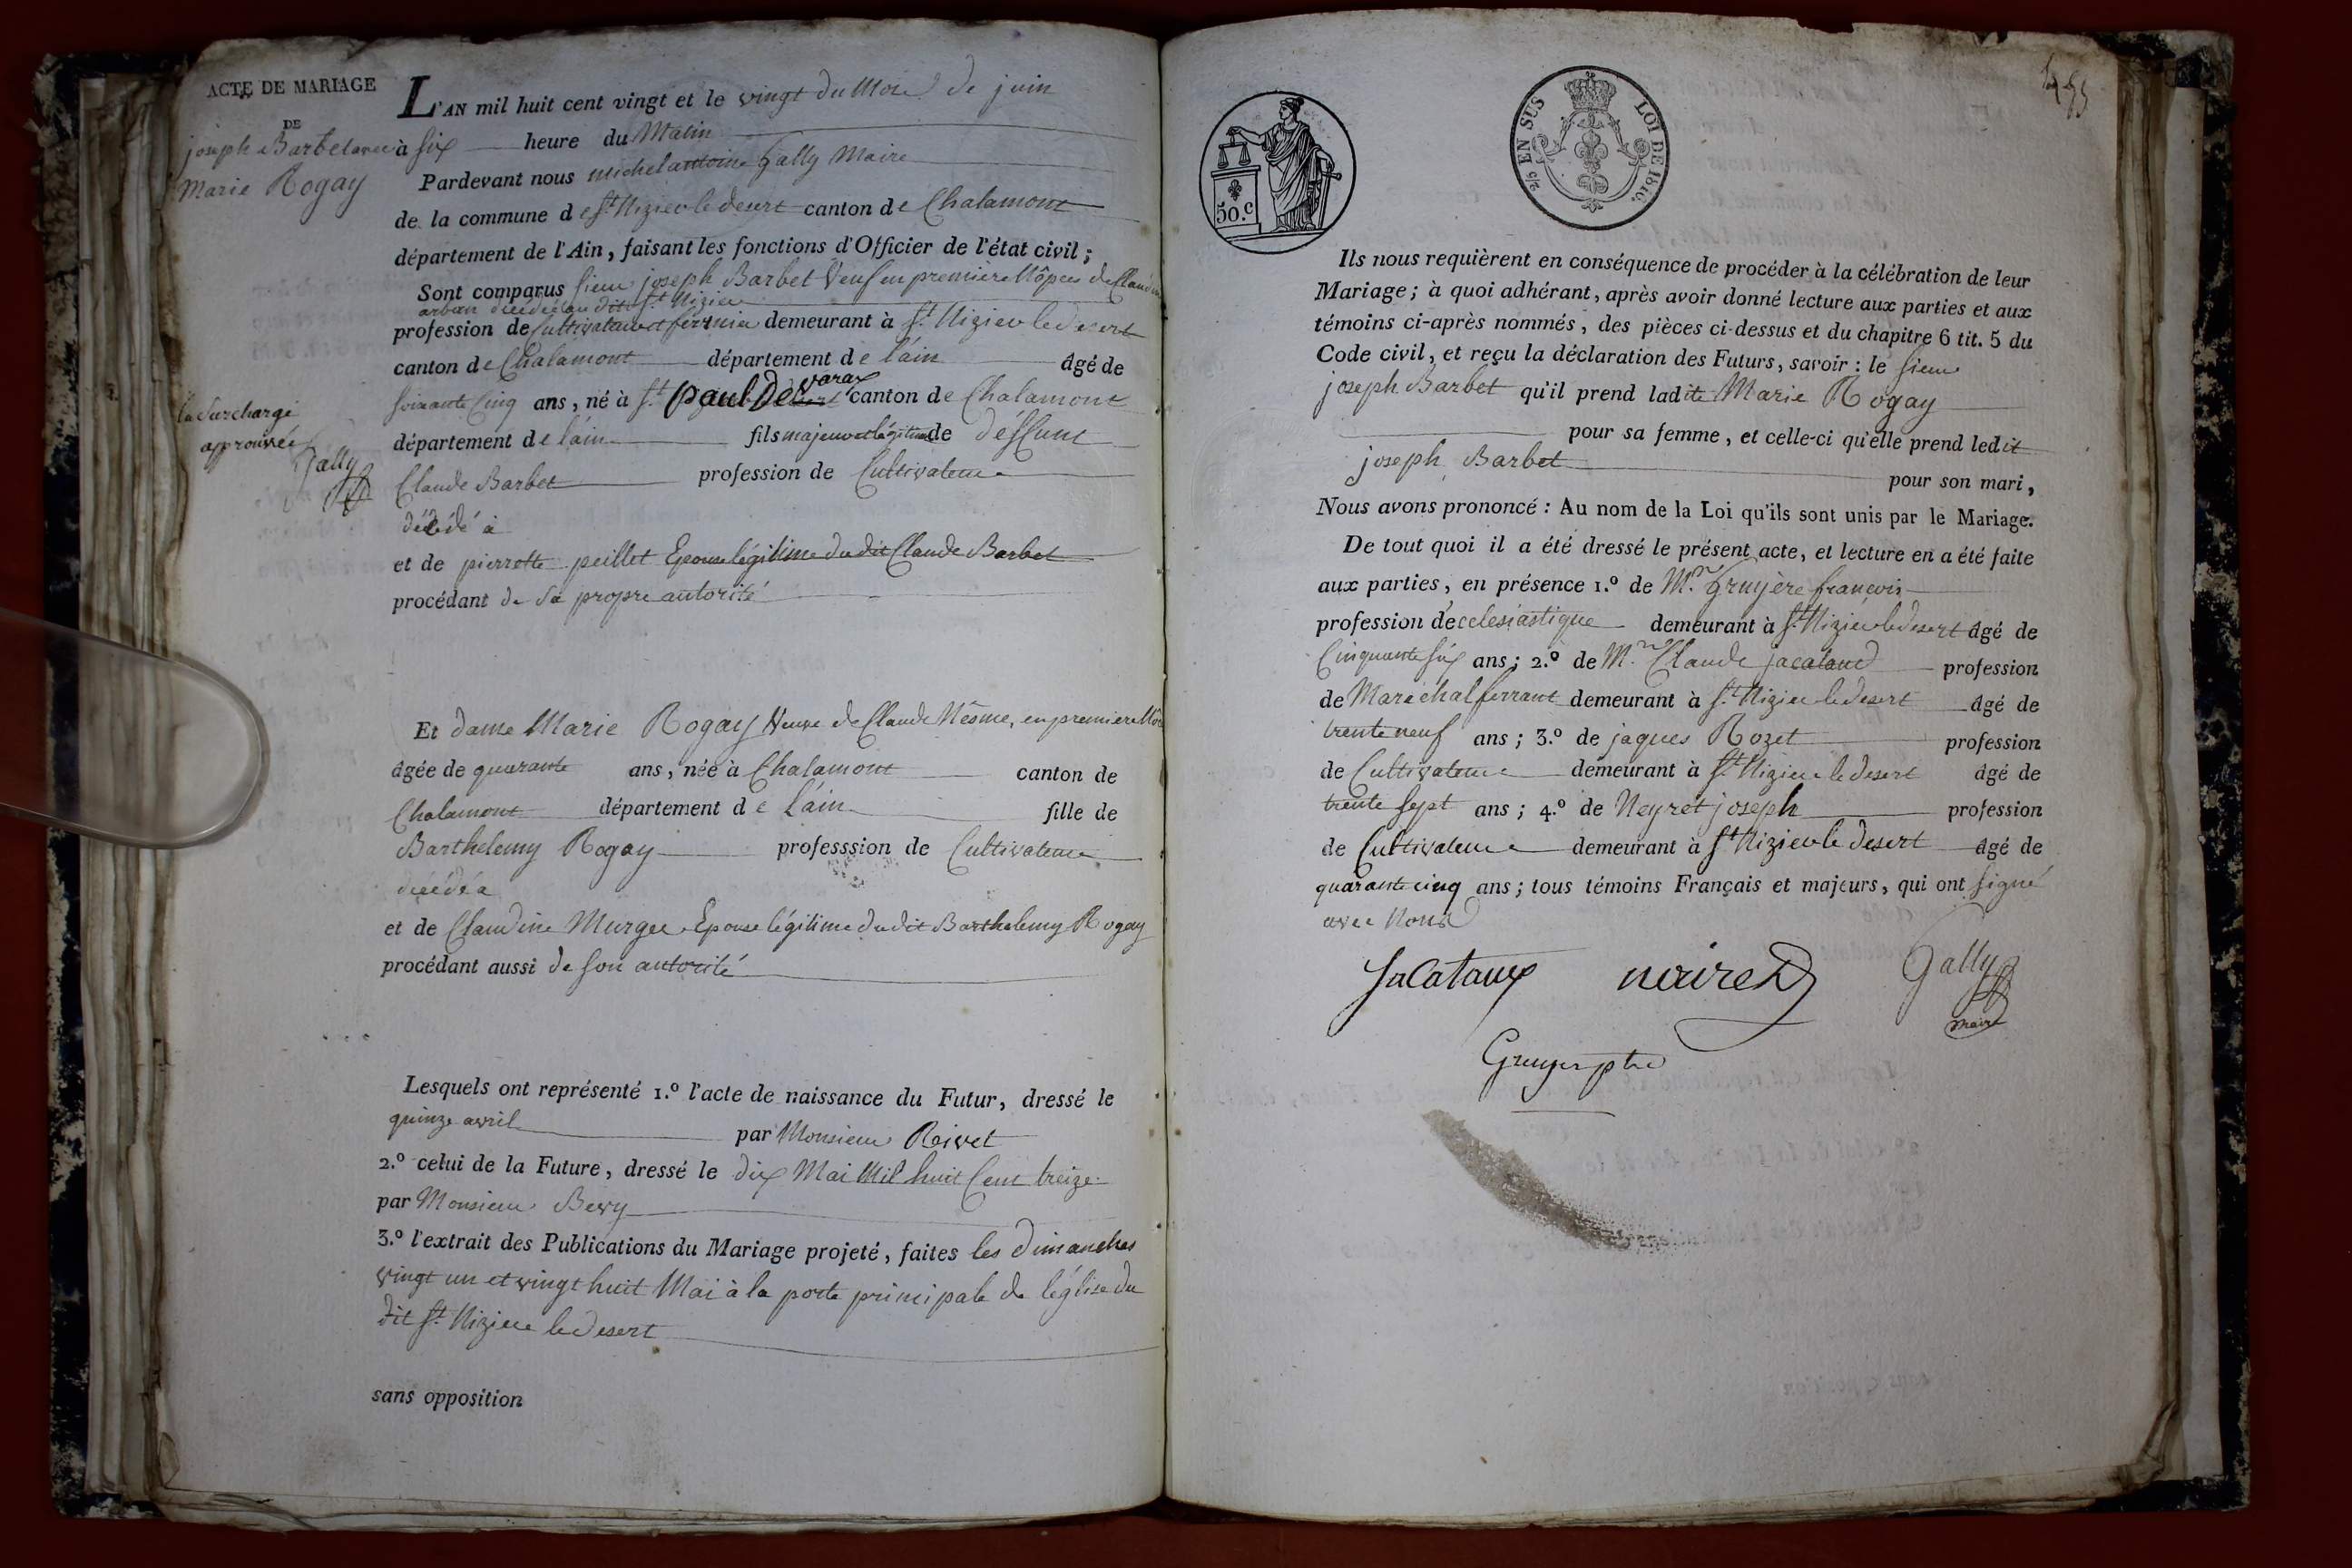 ACTE DE MARIAGE
DE
joseph Barbet avec
Marie Rogay
L'AN mil huit cent vingt et le vingt du Mois de juin
à six heure du Matin
Pardevant nous michel antoine Gally Maire
de la commune de St. Nizier le desert canton de Chalamont
département de l'Ain, faisant les fonctions d'Officier de l'état civil;
Sont comparus sieur joseph Barbet Veuf en premiere Nôpces de Claudine
arban décédée au dit St. Nizier
profession de Cultivateur et fermier demeurant à St. Nizier le desert
canton de Chalamont département de l'áin âgé de
soixante Cinq ans, né à St. paul De varax canton de Chalamont
la surcharge
approuvée
Gally
département de l'áin fils majeur et légitime de déffunt
Claude Barbet profession de Cultivateur
décédé à
et de pierrette peillet Epouse légitime du dit Claude Barbet
procédant de sa propre autorité
Et dame Marie Rogay Veuve de Claude Nêsme, en premiere
âgée de quarante ans, née à Chalamont canton de
Chalamont département de L'áin fille de
Barthelemy Rogay professsion de Cultivateur
décédé a
et de Claudine Murger Epouse légitime du dit Barthelemy Rogay
procédant aussi de son autorité
Lesquels ont représenté 1.º l'acte de naissance du Futur, dressé le
quinze avril par Monsieur Reivet
2.º celui de la Future, dressé le dix Mai Mil huit Cent treize
par Monsieur Bevy
3.º l'extrait des Publications du Mariage projeté, faites les dimanches
vingt un et vingt huit Mai à la porte principale de l'église du
dit St. Nizier le desert
sans opposition
50.c
2/5 EN SUS LOI DE 1816.
Ils nous requièrent en conséquence de procéder à la célébration de leur
Mariage; à quoi adhérant, après avoir donné lecture aux parties et aux
témoins ci-après nommés, des pièces ci-dessus et du chapitre 6 tit. 5 du
Code civil, et reçu la déclaration des Futurs, savoir: le sieur
joseph Barbet qu'il prend ladite Marie Rogay
pour sa femme, et celle-ci qu'elle prend ledit
joseph Barbet
pour son mari,
Nous avons prononcé: Au nom de la Loi qu'ils sont unis par le Mariage.
De tout quoi il a été dressé le présent acte, et lecture en a été faite
aux parties, en présence 1.º de Mr. Gruyère françois
profession d'écclesiastique demeurant à St. Nizier le desert âgé de
Cinquante six ans; 2.º de Mr. Claude jacataud profession
de Maréchal ferrant demeurant à St. Nizier le desert âgé de
trente neuf ans; 3.º de jaques Rozet profession
de Cultivateur demeurant à St. Nizier le desert âgé de
trente sept ans; 4.º de Neyret joseph profession
de Cultivateur demeurant à St Nizier le desert âgé de
quarante cinq ans; tous témoins Français et majeurs, qui ont signé
avec Nous
Jacataux neiret Gally
maire
Gruyer ptre